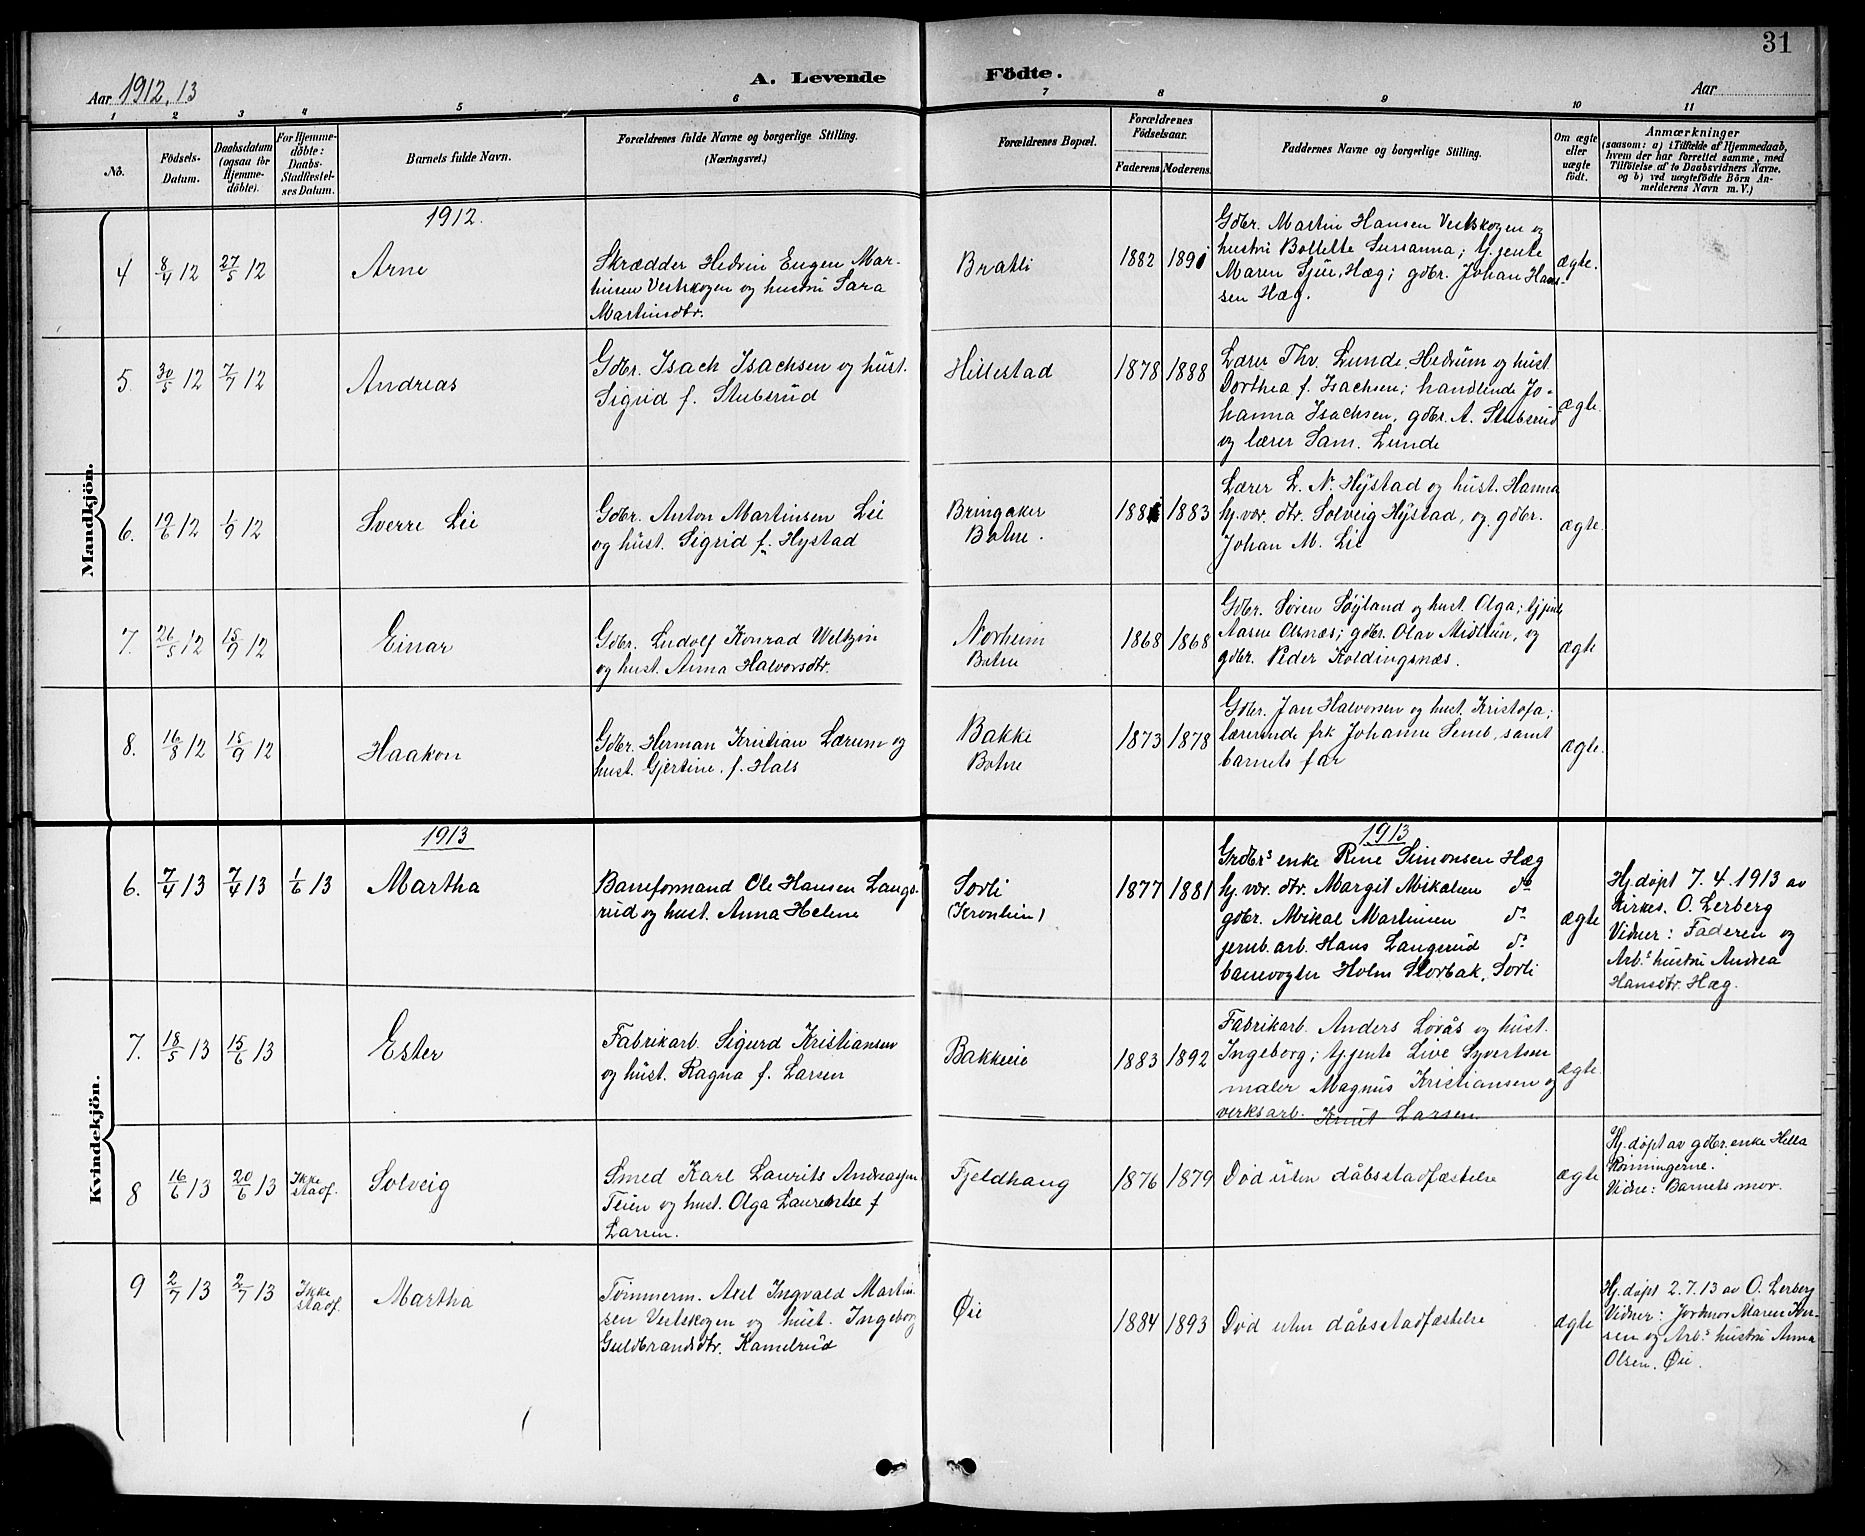 31
Aar 1912, 13
A. Levende Födte.
Aar
1 2 3 4 5 6 7 8 9 10 11
No.
Födsels-
Datum.
Daabsdatum
(ogsaa for
Hjemme-
döbte).
For Hjemme-
döbte:
Daabs-
Stadfæstel-
ses Datum.
Barnets fulde Navn.
Forældrenes fulde Navne og borgerlige Stilling.
(Næringsvei.)
Forældrenes Bopæl.
Forældrenes
Födselsaar.
Faderens Moderens.
Faddernes Navne og borgerlige Stilling.
Om ægte
eller
uægte
født.
Anmærkninger
(saasom: a) i Tilfælde af Hjemmedaab,
hvem der har forrettet samme, med
Tilføielse af to Daabsvidners Navne,
og b) ved uægtefödte Börn An-
melderens Navn m. V.)
Mandkjön.
1912.
4 8/4 12 27/5 12
Arne
Skrædder Hedvin Eugen Mar-
tinsen Vestskogen og hustru Sara
Martinsdtr.
Bratli
1882 1890
Gdbr. Martin Hansen Vestskogen og
hustru Bollette Sussanna; tj.jente
Maren Sjue, Hæg; gdbr. Johan Han-
sen Hæg.
ægte.
5. 30/5 12 7/7 12
Andreas
Gdbr. Isach Isachsen og hust.
Sigrid f. Stuberud
Hillestad
1878 1888
Lærer Thv. Lunde, Hedrum og hust.
Dorthea f. Isachsen; handlende Jo-
hanna Isachsen, gdbr. A. Stuberud
og lærer Sam. Lunde
ægte.
6. 19/6 12 1/9 12
Sverre Lie
Gdbr. Anton Martinsen Lie
og hust. Sigrid f. Hystad
Bringaker
Botne.
1881 1883
Lærer L. N. Hystad og hust. Hanna
hj.vær. dtr. Solveig Hystad, og gdbr.
Johan M. Lie
ægte.
7. 26/5 12 15/9 12
Einar
Gdbr. Ludolf Konrad Weltzin
og hust. Anna Halvorsdtr.
Norheim
Botne
1868 1868
Gdbr. Søren Søyland og hust. Olga; tj.jente
Aasne Olsnæs; gdbr. Olav Midttun, og
gdbr. Peder Koldingsnæs.
ægte
8. 16/8 12 15/9 12
Haakon
Gdbr. Herman Kristian Lærum og
hust. Gjertine f. Hals
Bakke
Botne
1873 1878
Gdbr. Jan Halvorsen og hust. Kristofa;
lærerinde frk Johanne Semb, samt
barnets far
ægte.
Kvindekjön.
1913
1913
6. 7/4 13 7/4 13 1/6 13
Martha
Baneformand Ole Hansen Langs-
rud og hust. Anna Helene
Sorli
(Kronlien)
1877 1881
Grdbrs enke Rine Simonsen Hæg
hj.vær. dtr. Margit Mikalsen do
gdbr. Mikal Martinsen do
jernb.arb. Hans Langsrud do
banevogter Holm Storbak, Sorli
ægte
Hj.døpt 7.4.1913 av
kirkes. O. Lerberg
Vidner: Faderen og
Arb.s hustru Andrea
Hansdtr. Hæg.
7. 18/5 13 15/6 13
Ester
Fabrikarb. Sigurd Kristiansen
og hust. Ragna f. Larsen
Bakkeeie
1883 1892
Fabrikarb. Anders Lovås og hust.
Ingeborg; tj.jente Live Syvertsen
maler Magnus Kristiansen og
verksarb. Knut Larsen
ægte.
8 16/6 13 20/6 13 Ikke
stadf.
Solveig
Smed Karl Laurits Andreassen
Teien og hust. Olga Laurentse f
Larsen.
Fjeldhaug
1876 1879
Død uten dåbsstadfæstelse
ægte
Hj.døpt av gdbr.enke Hella
Rønningerne.
Vidne: Barnets mor.
9 2/7 13 2/7 13 Ikke
stadf.
Martha
Tømmerm. Axel Ingvald Martin-
sen Vestskogen og hust. Ingeborg
Guldbrandsdtr. Kamelrud
Øie
1884 1893
Død uten dåbsstadfæstelse
ægte
Hj.døpt 2.7.13 av O. Lerberg
Vidner: Jordmor Maren Iver-
sen og Arb.s hustru Anna
Olsen. Øie.